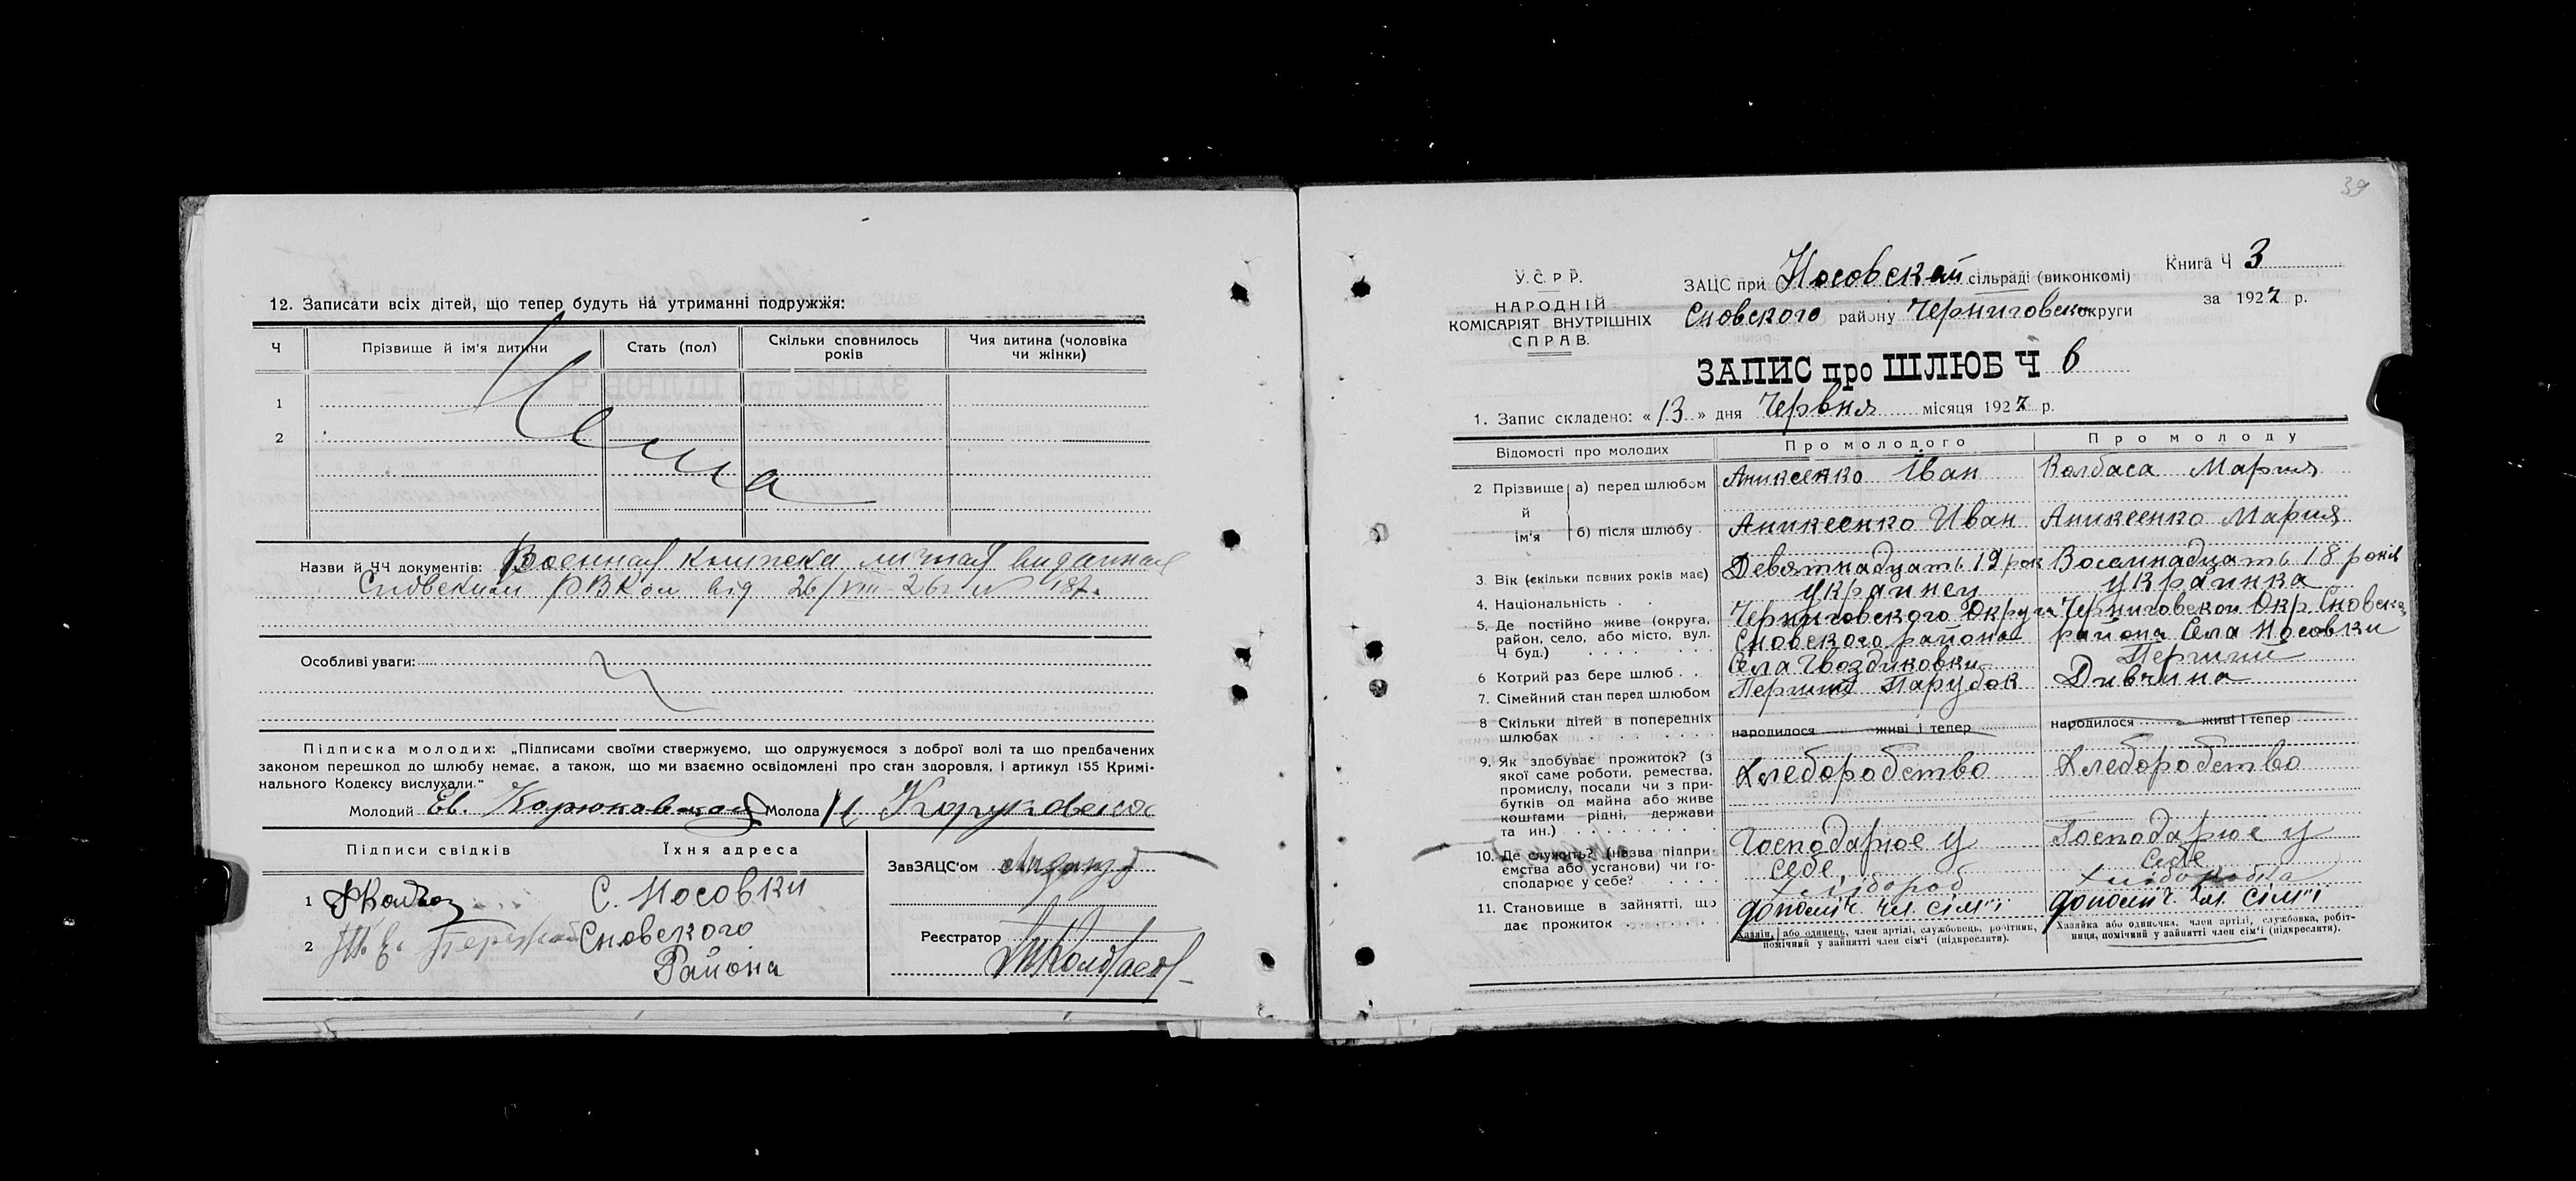 12. Записати всіх дітей, що тепер будуть на утриманні подружжя:
Ч Прізвище й ім'я дитини Стать (пол) Скільки сповнилось років Чия дитина (чоловіка чи жінки)
1
2
Нема
Назви й ЧЧ документів: Военная книжка личная виданная
Сновским РВКом від 26/VIII-26г № 187.
Особливі уваги:
Підписка молодих: „Підписами своїми ствержуємо, що одружуємося з доброї волі та що предбачених
законом перешкод до шлюбу немає, а також, що ми взаємно освідомлені про стан здоровля, і артикул 155 Кримі-
нального Кодексу вислухали."
Молодий Ев. Молода
Підписи свідків Їхня адреса
1 С. Носовки
2 Сновского
Района
ЗавЗАЦС'ом
Реєстратор
39
У.С.Р.Р.
НАРОДНІЙ
КОМІСАРІЯТ ВНУТРІШНІХ
СПРАВ.
ЗАЦС при Носовской сільраді (виконкомі)
Сновского району Черниговск округи
Книга Ч 3
за 1927 р.
ЗАПИС про ШЛЮБ Ч 6
1. Запис складено: «13» дня Червня місяця 1927 р.
Відомості про молодих Про молодого Про молоду
2 Прізвище й ім'я а) перед шлюбом Аникеенко Іван Колбаса Мария
б) після шлюбу Аникеенко Иван Аникеенко Мария
3. Вік (скільки повних років має) Девятнадцать 19 рок Восемнадцать 18 років
4. Національність украинец украинка
5. Де постійно живе (округа, район, село, або місто, вул. Ч буд.) Черниговского Округа Сновского района Села Гвоздиковки Черниговской Окр. Сновска района Села Носовки
6 Котрий раз бере шлюб Перший Перший
7. Сімейний стан перед шлюбом Парубок Дивчина
8 Скільки дітей в попередніх шлюбах народилося живі і тепер народилося живі і тепер
9. Як здобуває прожиток? (з якої саме роботи, ремества, промислу, посади чи з прибутків од майна або живе коштами рідні, держави та ин.) Хлеборобство Хлеборобство
10. Де служить? (назва підприємства або установи) чи господарює у себе? Господарюе у себе, Господарюе у себе
11. Становище в зайнятті, що дає прожиток хлібороб допоміч. чл. сім'ї хліборобка допоміч. чл. сім'ї
Хазяїн, або одинець, член артілі, службовець, робітник, помічний у зайнятті член сім'ї (підкреслити).
Хазяйка або одиночка, член артілі, службовка, робітниця, помічний у зайнятті член сім'ї (підкреслити).